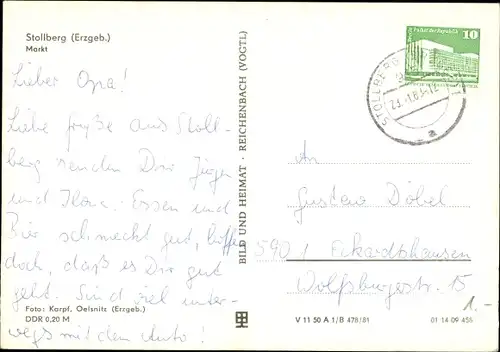 Stollberg (Erzgeb.)
Markt
Lieber Opa!
Liebe Grüße aus Stoll-
berg senden Dir Jürgen
und Ilona. Essen und
Bier schmeckt gut, hoffen
doch, daß es Dir gut
geht. Sind viel unter-
wegs mit dem Auto!
Foto: Karpf, Oelsnitz (Erzgeb.)
DDR 0,20 M
BILD UND HEIMAT · REICHENBACH (VOGTL)
10
STOLLBERG
An
Gustav Döbel
5901 Eckardtshausen
Wolfsburgestr. 15
1.
V 11 50 A 1/B 478/81
01 14 09 455